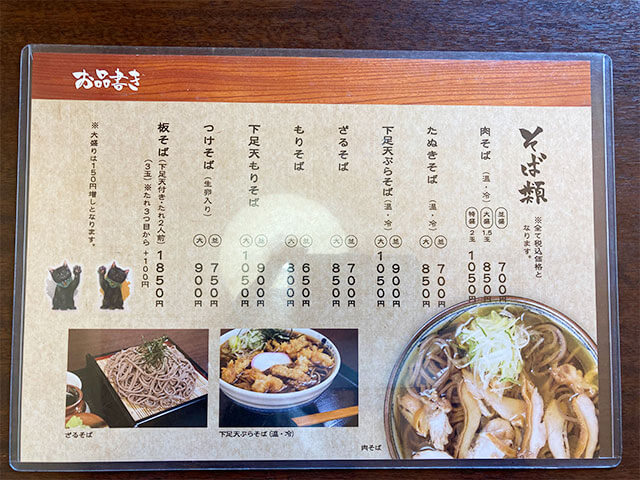 お品書き
そば類
※全て税込価格と
なります。
肉そば（温・冷）
並盛 700円
大盛 1.5玉 850円
特盛 2玉 1050円
たぬきそば（温・冷）
並 700円
大 850円
下足天ぷらそば（温・冷）
並 900円
大 1050円
ざるそば
並 700円
大 850円
もりそば
並 650円
大 800円
下足天もりそば
並 900円
大 1050円
つけそば（生卵入り）
並 750円
大 900円
板そば（下足天付き・たれ2人前） 1850円
（3玉）※たれ3つ目から＋100円
※大盛りは150円増しとなります。
ざるそば
下足天ぷらそば（温・冷）
肉そば